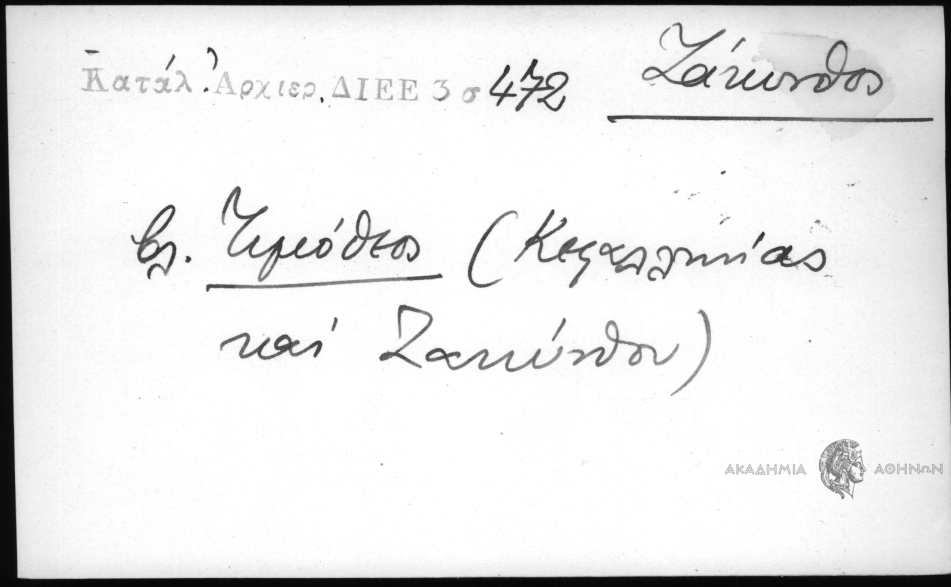 Κατάλ. Ἀρχιερ. ΔΙΕΕ 3 σ 472
Ζάκυνθος
βλ. Τιμόθεος (Κεφαλληνίας
καί Ζακύνθου)
ΑΚΑΔΗΜΙΑ ΑΘΗΝΩΝ